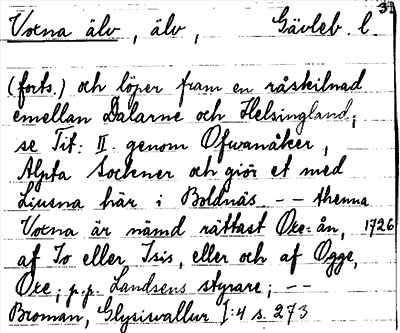 3.
Voxna älv, älv, Gävleb. l
(forts.) och löper fram en råskilnad
emellan Dalarne och Helsingland;
se Tit: II. genom Ofwanåker,
Alfta Sockner och giör et med
Liusna här i Boldnäs -- thenna
Voxna är nämd rättast Oxe=ån, 1726
af Io eller, Isis, eller och af Ogge,
Oxe; p.p. Landsens styrare; --
Broman, Glysisvallur I:4 s. 273